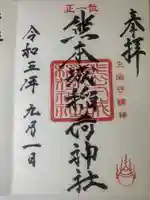 奉拝
正一位
熊本城稲荷神社
令和三年九月一日